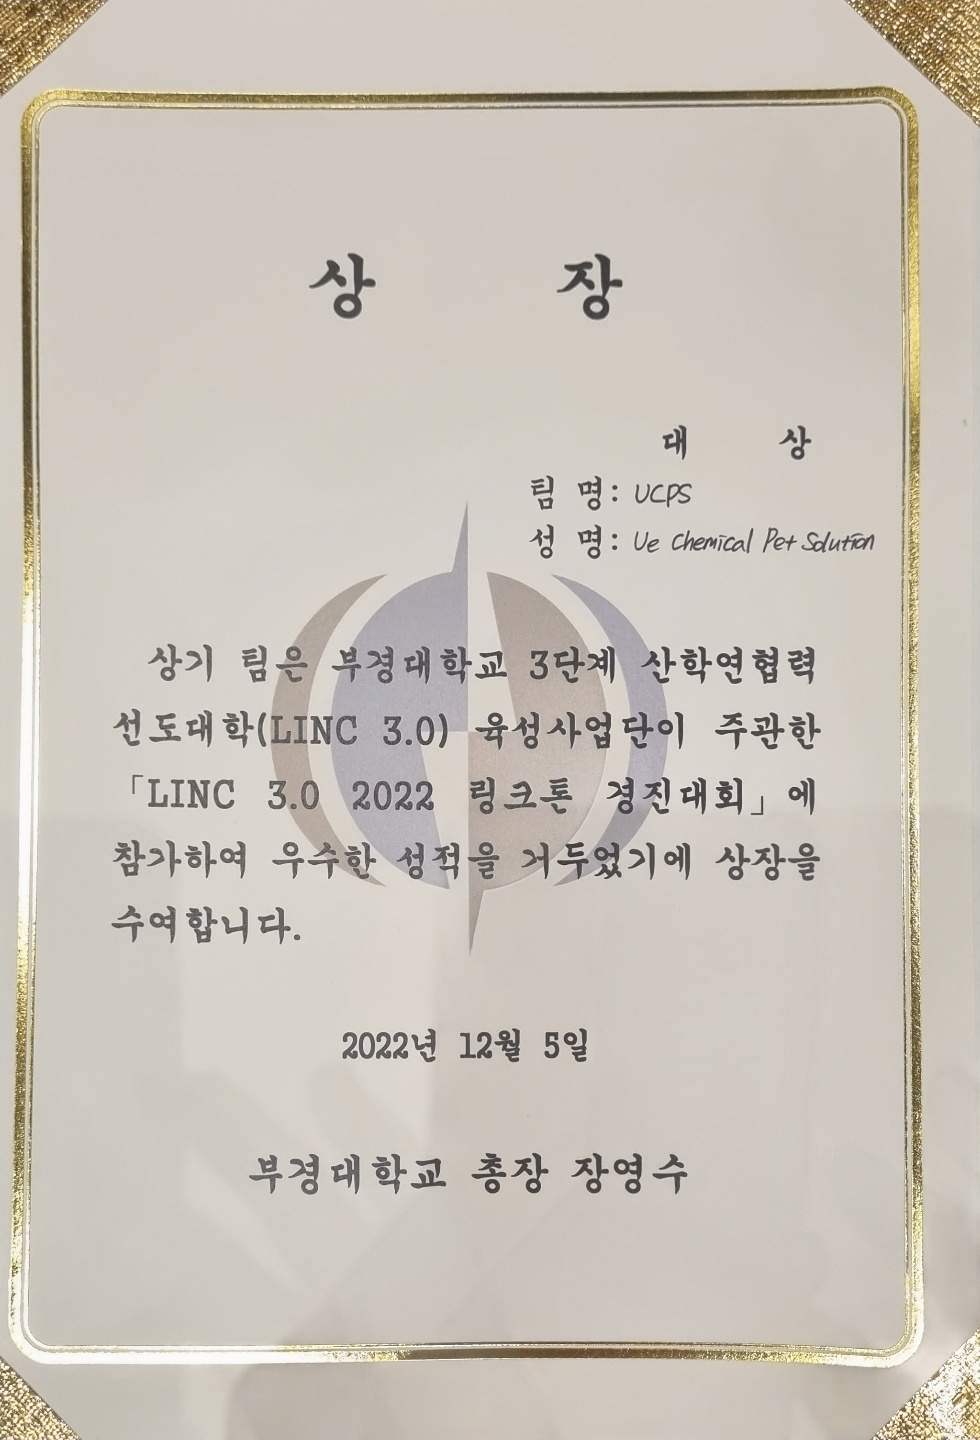 상 장
대 상
팀 명: UCPS
성 명: Ue Chemical Pet Solution
상기 팀은 부경대학교 3단계 산학연협력
선도대학(LINC 3.0) 육성사업단이 주관한
「LINC 3.0 2022 링크톤 경진대회」에
참가하여 우수한 성적을 거두었기에 상장을
수여합니다.
2022년 12월 5일
부경대학교 총장 장영수